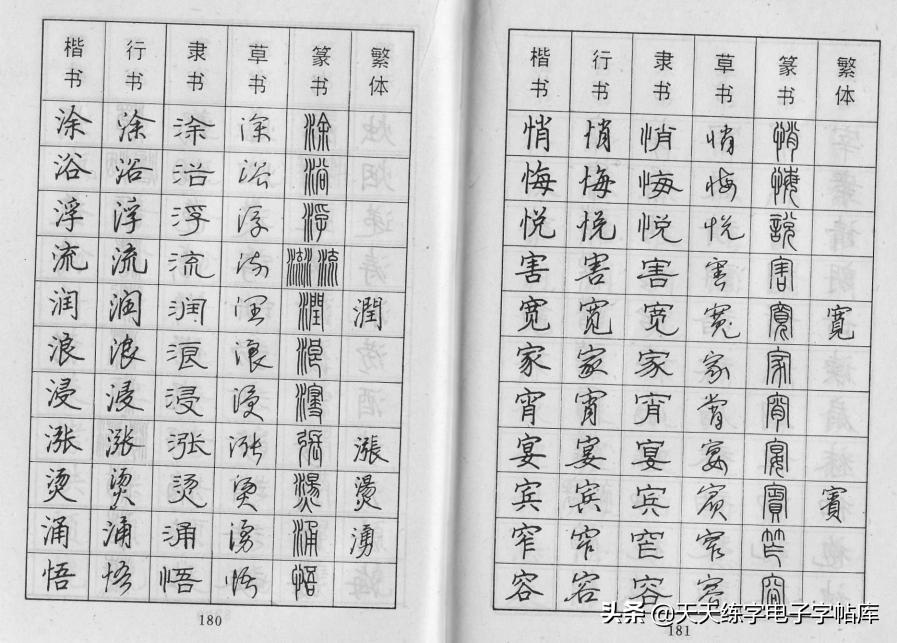 楷书 行书 隶书 草书 篆书 繁体
涂 涂 涂 涂 涂
浴 浴 浴 浴 浴
浮 浮 浮 浮 浮
流 流 流 流 流 流
润 润 润 润 潤 潤
浪 浪 浪 浪 浪
浸 浸 浸 浸 浸
涨 涨 涨 涨 張 漲
烫 烫 烫 烫 燙 燙
涌 涌 涌 湧 涌 湧
悟 悟 悟 悟 悟
180
楷书 行书 隶书 草书 篆书 繁体
悄 悄 悄 悄 悄
悔 悔 悔 悔 悔
悦 悦 悦 悦 説
害 害 害 害 害
宽 宽 宽 寬 寬 寬
家 家 家 家 家
宵 宵 宵 宵 宵
宴 宴 宴 宴 宴
宾 宾 宾 宾 賓 賓
窄 窄 窄 窄 笮
容 容 容 容 容
181
头条 @天天练字电子字帖库